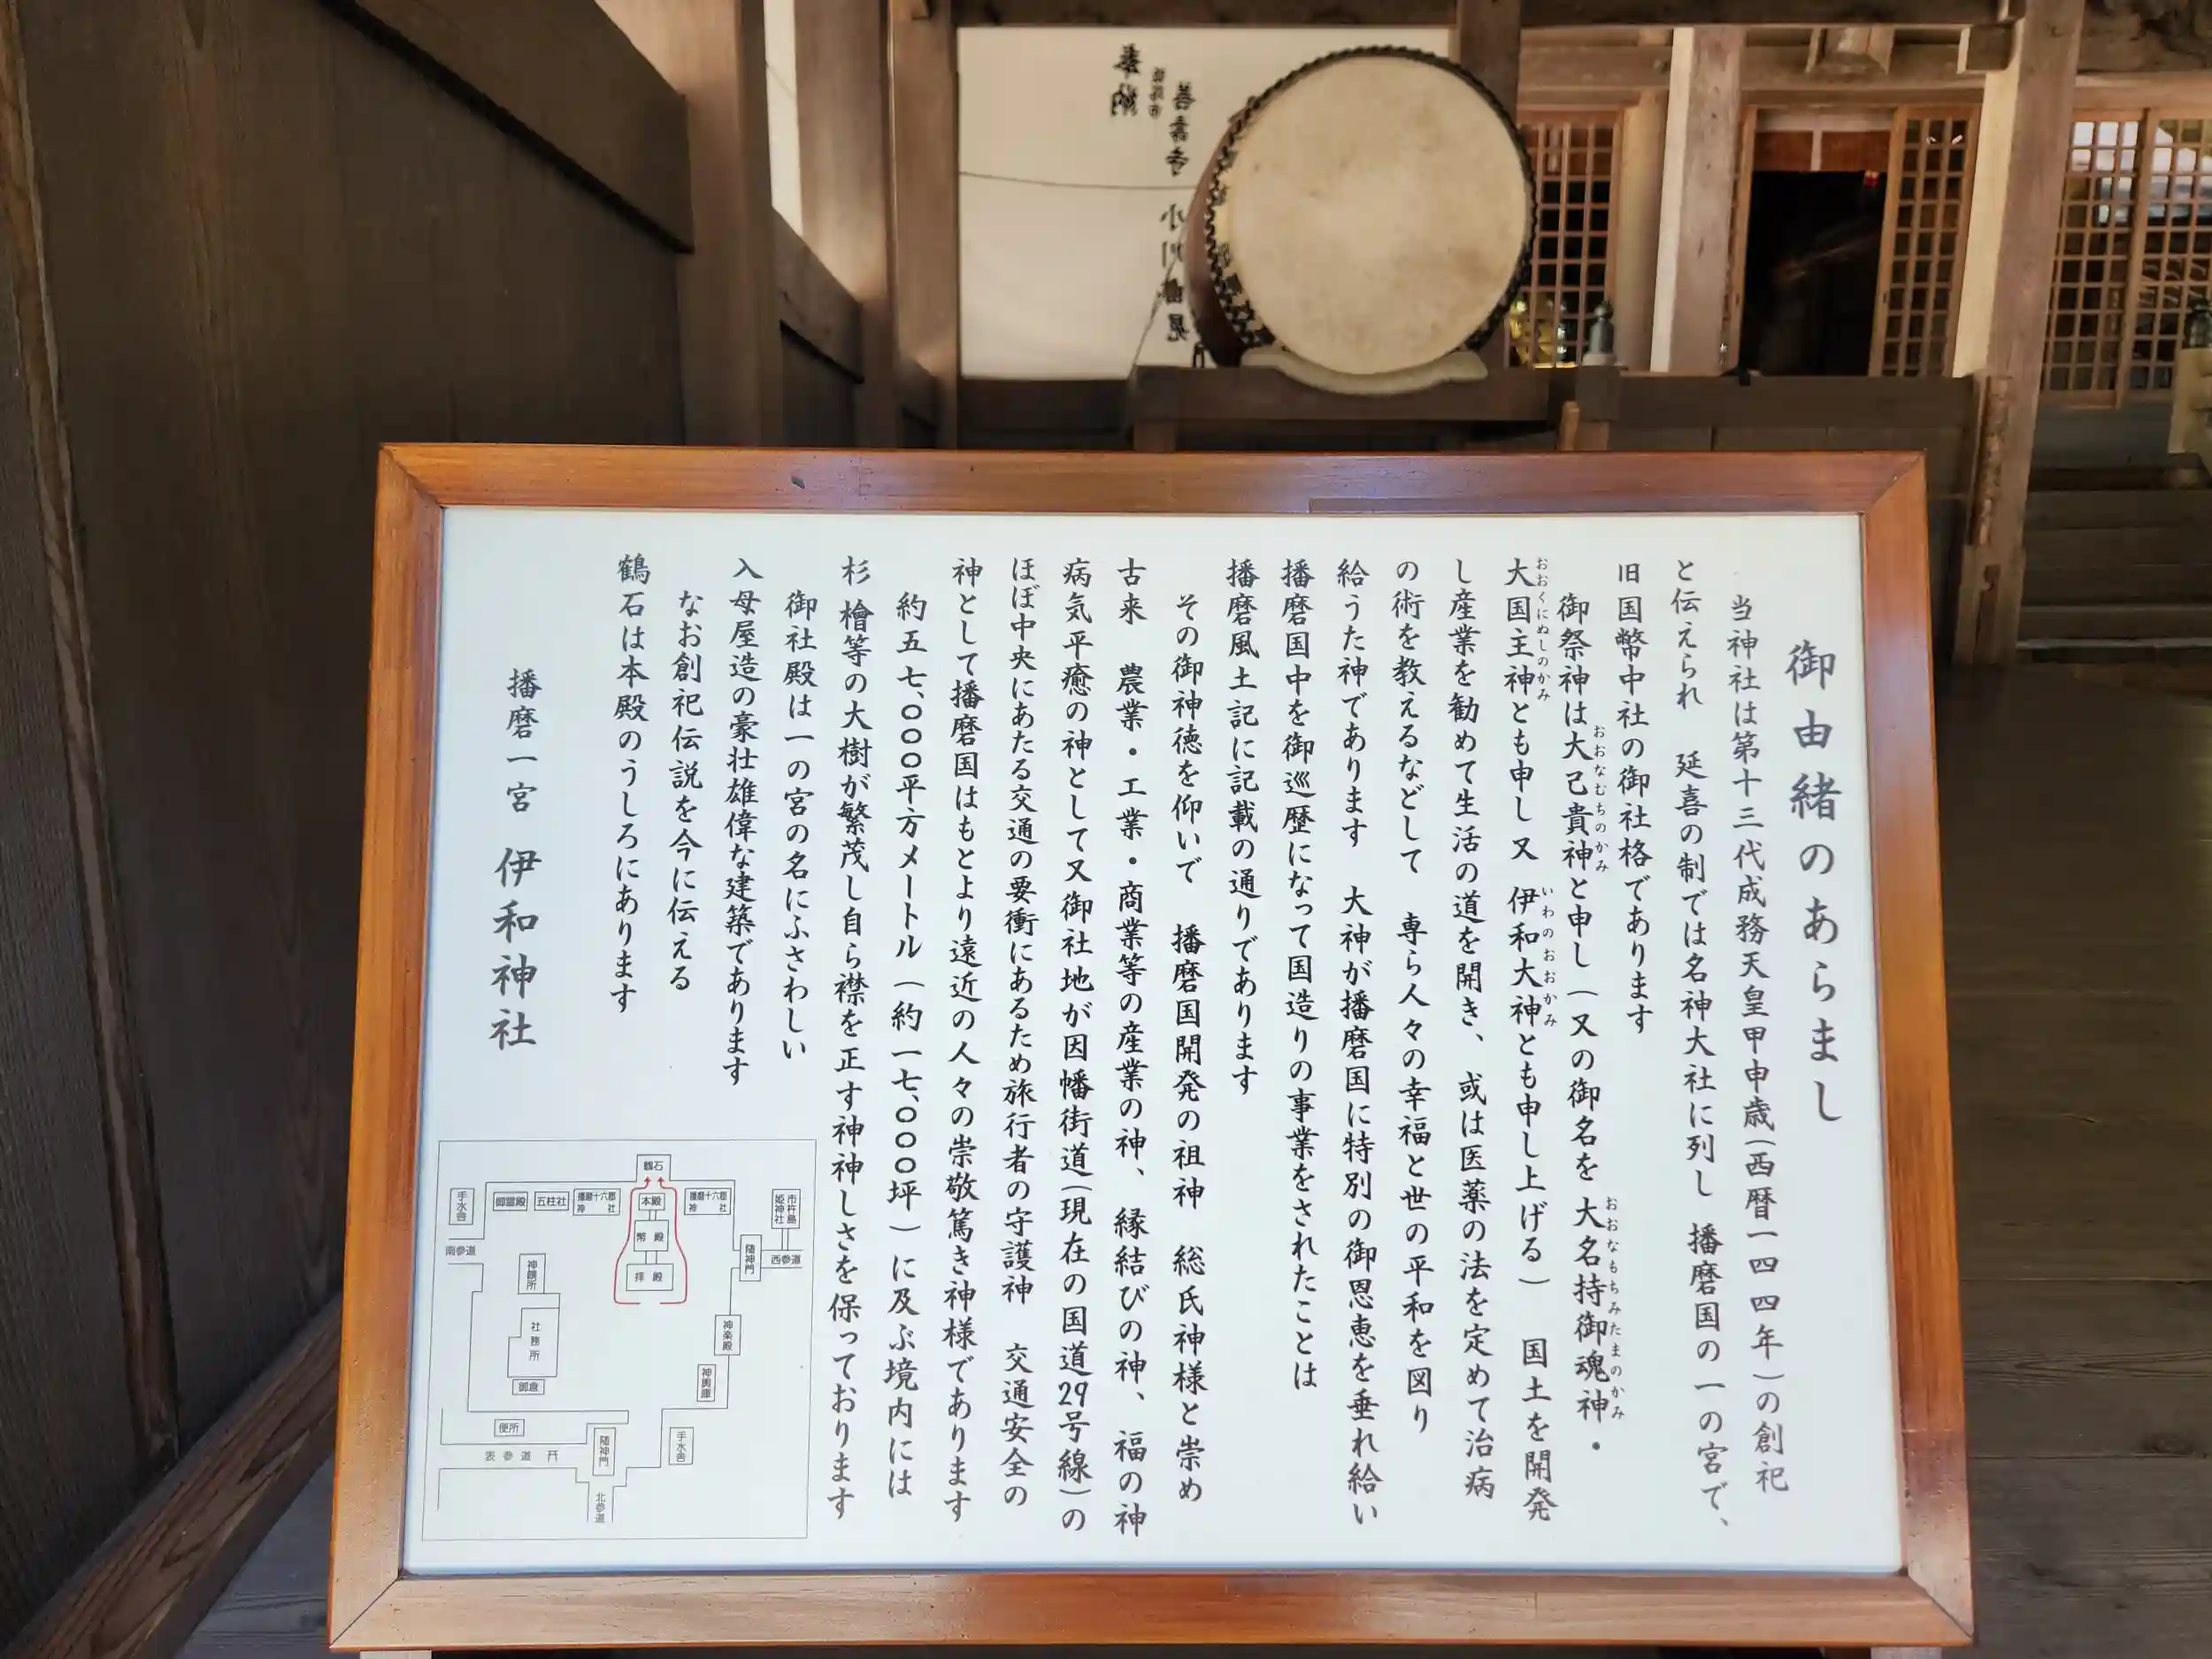 奉納
善壽寺
小川
御由緒のあらまし
当神社は第十三代成務天皇甲申歳(西暦一四四年)の創祀
と伝えられ 延喜の制では名神大社に列し 播磨国の一の宮で、
旧国幣中社の御社格であります
御祭神は大己貴神と申し(又の御名を 大名持御魂神・
おおなむちのかみ
おおなもちみたまのかみ
大国主神とも申し又 伊和大神とも申し上げる) 国土を開発
おおくにぬしのかみ
いわのおおかみ
し産業を勧めて生活の道を開き、 或は医薬の法を定めて治病
の術を教えるなどして 専ら人々の幸福と世の平和を図り
給うた神であります 大神が播磨国に特別の御恩恵を垂れ給い
播磨国中を御巡歴になって国造りの事業をされたことは
播磨風土記に記載の通りであります
その御神徳を仰いで 播磨国開発の祖神 総氏神様と崇め
古来 農業・工業・商業等の産業の神、 縁結びの神、 福の神
病気平癒の神として又御社地が因幡街道(現在の国道29号線)の
ほぼ中央にあたる交通の要衝にあるため旅行者の守護神 交通安全の
神として播磨国はもとより遠近の人々の崇敬篤き神様であります
約五七、〇〇〇平方メートル(約一七、〇〇〇坪)に及ぶ境内には
杉 檜等の大樹が繁茂し自ら襟を正す神神しさを保っております
御社殿は一の宮の名にふさわしい
入母屋造の豪壮雄偉な建築であります
なお創祀伝説を今に伝える
鶴石は本殿のうしろにあります
播磨一宮 伊和神社
鶴石
手水舎
御霊殿
五柱社
播磨十六郡神社
本殿
播磨十六郡神社
市杵島姫神社
南参道
幣殿
随神門
西参道
神饌所
拝殿
社務所
神楽殿
御倉
神輿庫
便所
随神門
手水舎
表参道
北参道